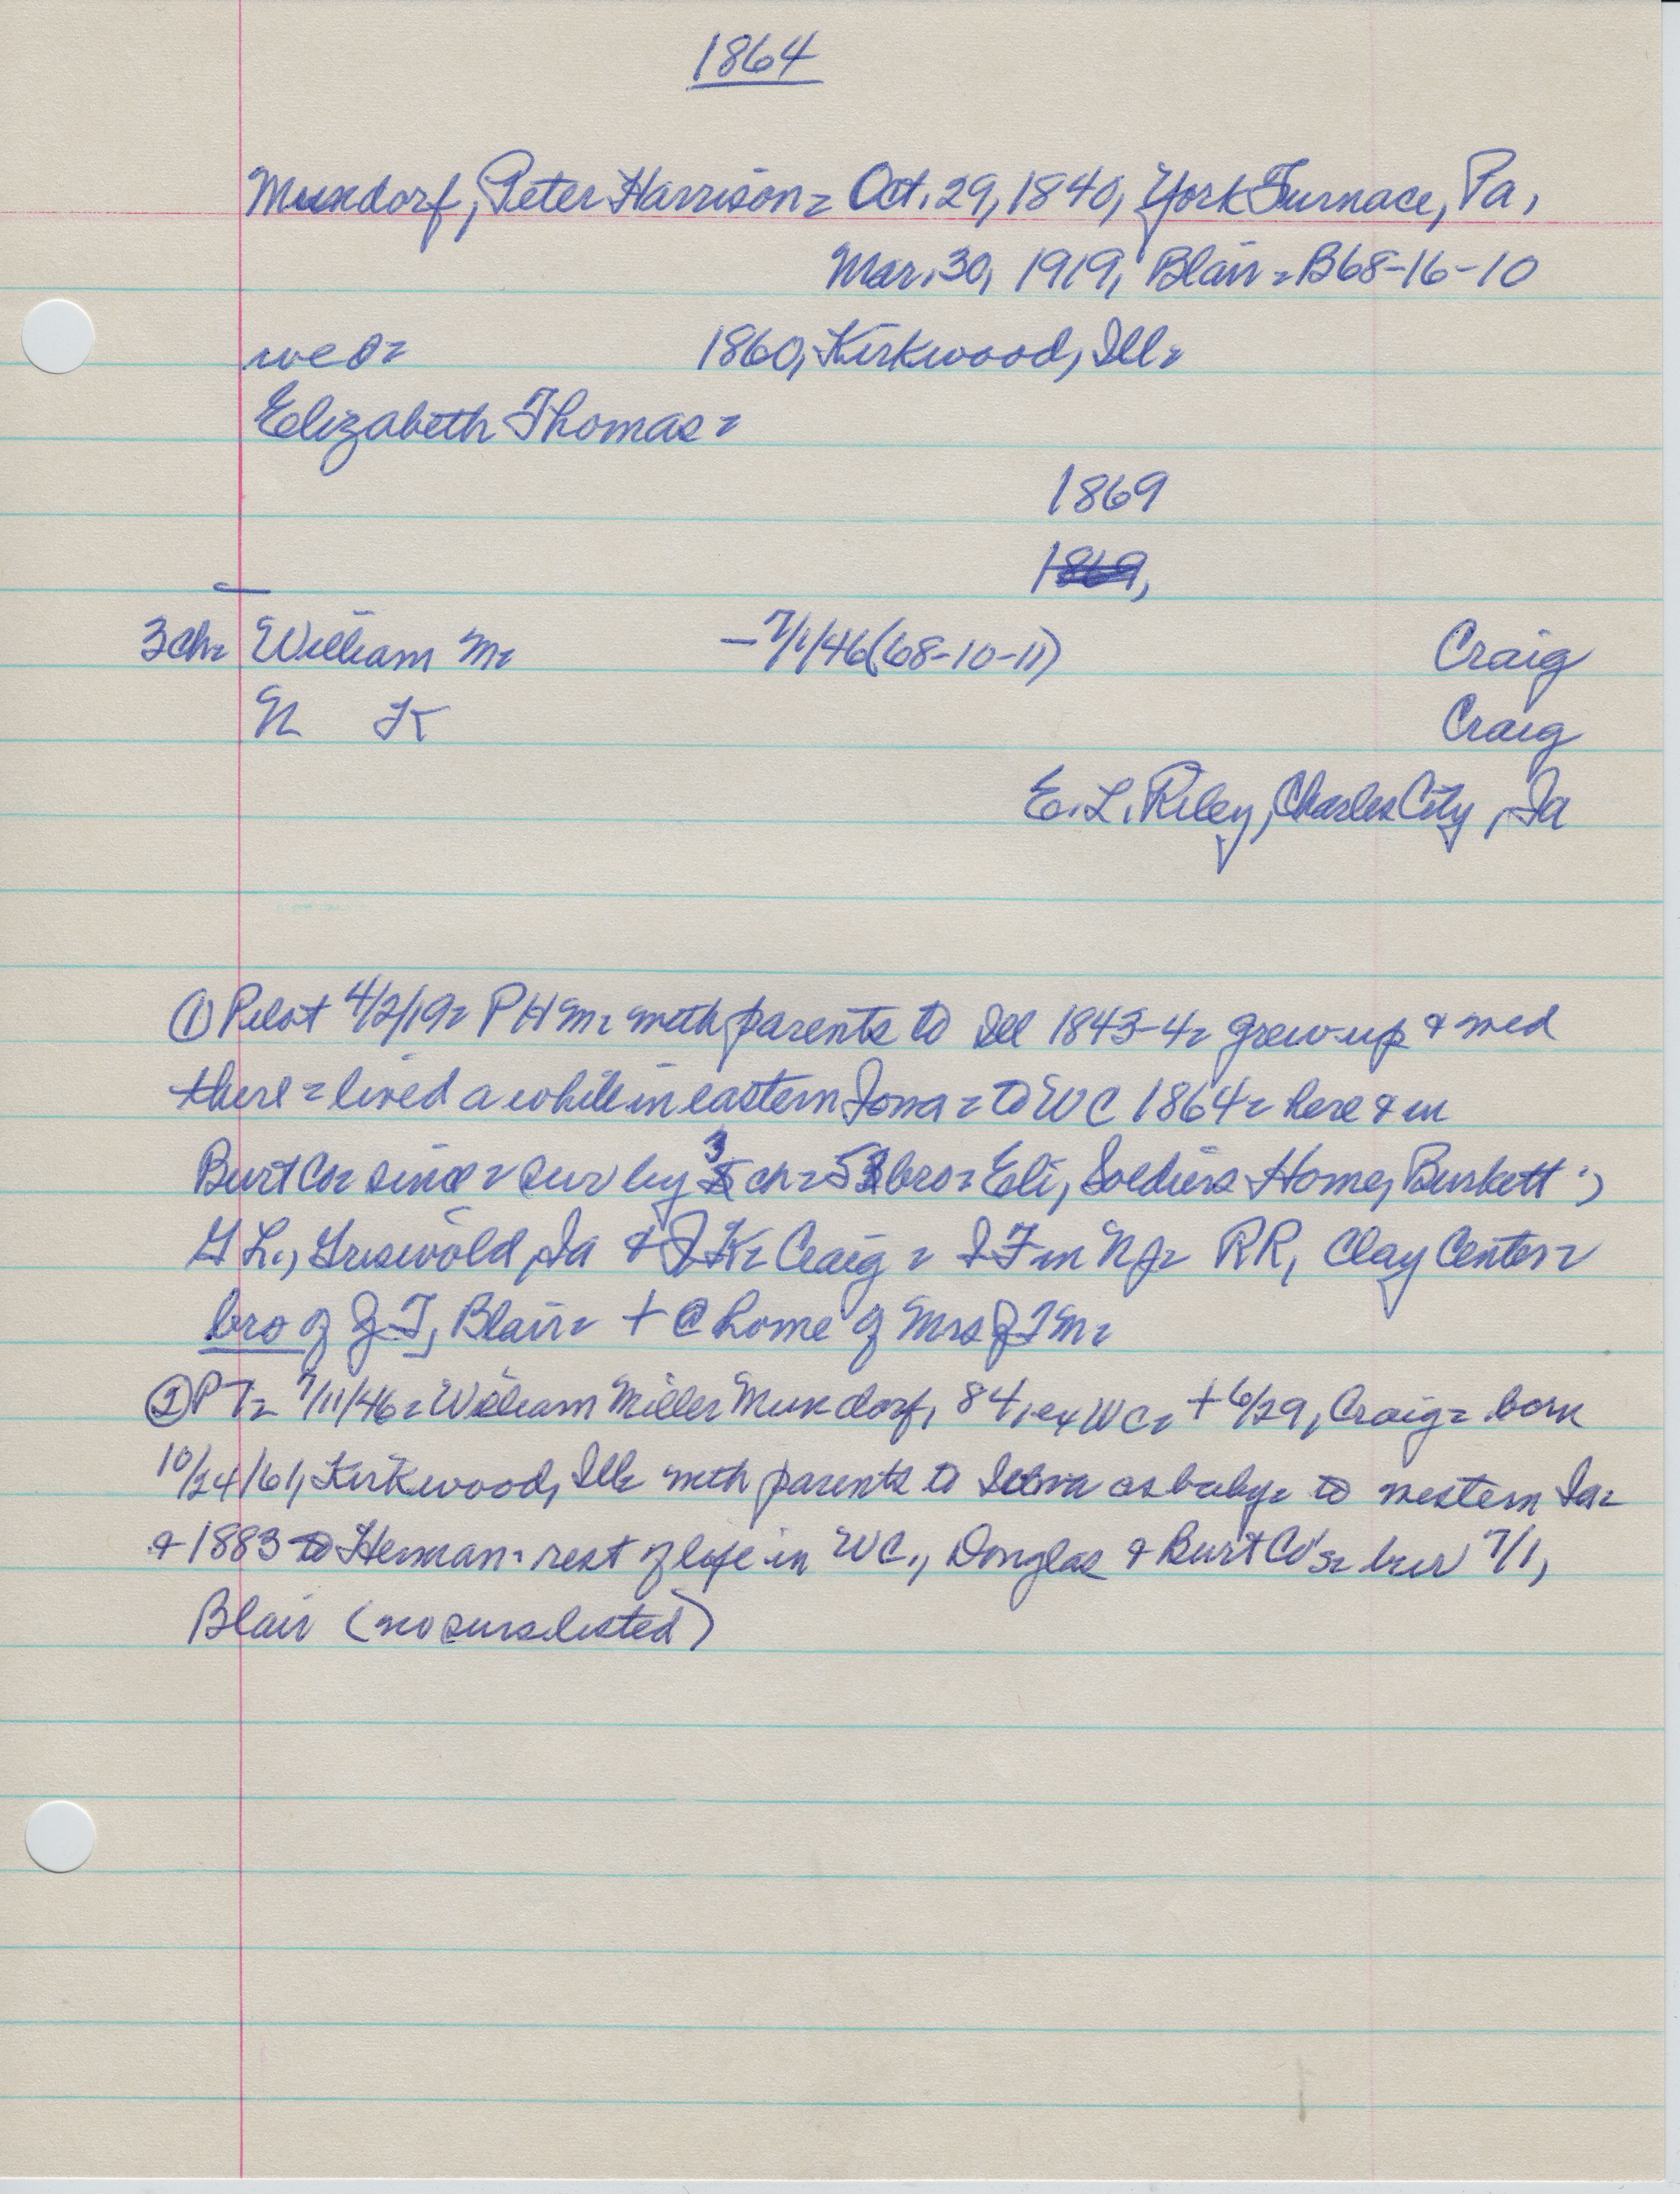 1864
Mundorf, Peter Harrison = Oct. 29, 1840, York Furnace, Pa,
Mar. 30, 1919, Blair = B68-16-10
wed = 1860, Kirkwood, Ill =
Elizabeth Thomas =
1869
1869,
3 ch = William M = - 7/1/46 (68-10-11) Craig
N K Craig
E. L. Riley, Charles City, Ia
① Pilot 4/2/19 = P H M = with parents to Ill 1843-4 = grew up & wed
there = lived a while in eastern Iowa = to WC 1864 = here & in
Burt Co = since = sur by 3 ch = 5 bro = Eli, Soldiers Home, Burkett =
G L., Griswold, Ia & J K = Craig = I F in N J = RR, Clay Center =
bro of J T, Blair = + @ home of Mrs J T M =
② P T = 7/11/46 = William Miller Mundorf, 84, ex WC = + 6/29, Craig = born
10/24/61, Kirkwood, Ill = with parents to as baby = to western Ia =
& 1883 to Herman = rest of life in WC., Douglas & Burt Co's = bur 7/1,
Blair (no surs listed)